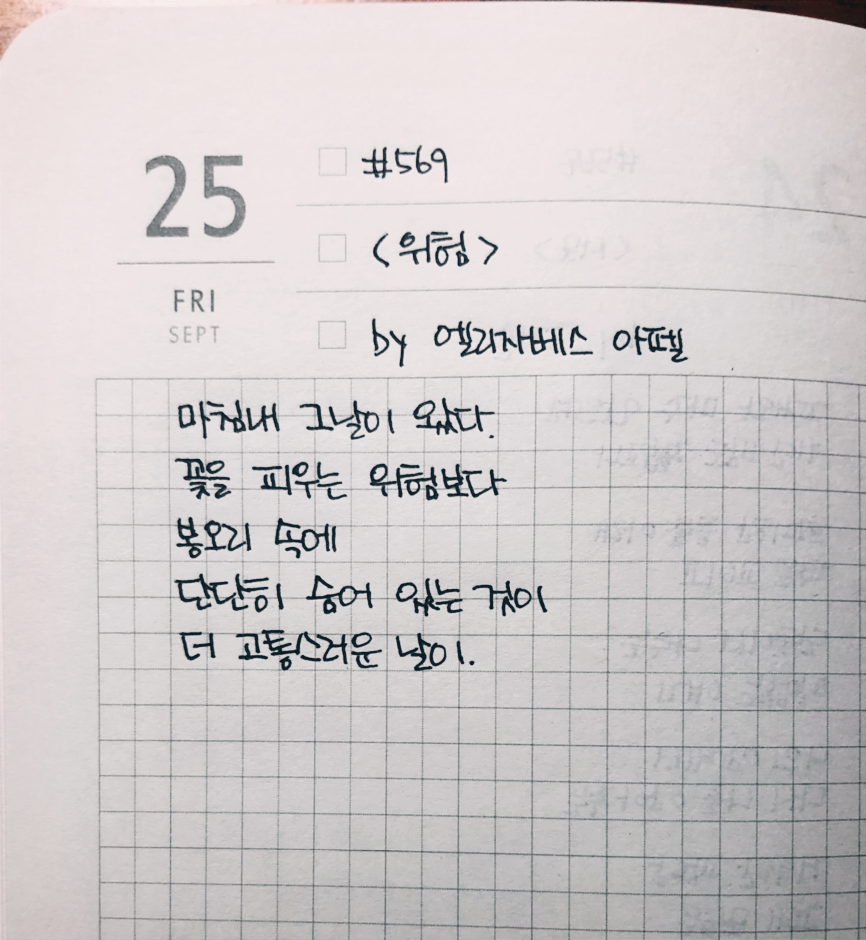 25
FRI
SEPT
#569
<위험>
by 엘리자베스 아펠
마침내 그날이 왔다.
꽃을 피우는 위험보다
봉오리 속에
단단히 숨어 있는 것이
더 고통스러운 날이.